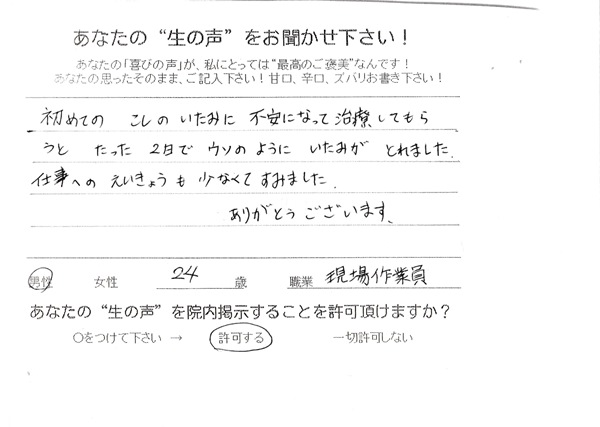 あなたの“生の声”をお聞かせ下さい！
あなたの「喜びの声」が、私にとっては“最高のご褒美”なんです！
あなたの思ったそのまま、ご記入下さい！甘口、辛口、ズバリお書き下さい！
初めての こしの いたみに 不安になって治療してもら
うと たった 2日で ウソのように いたみが とれました.
仕事への えいきょうも 少なくてすみました.
ありがとう ございます.
男性 女性 24 歳 職業 現場作業員
あなたの“生の声”を院内掲示することを許可頂けますか？
○をつけて下さい → 許可する 一切許可しない